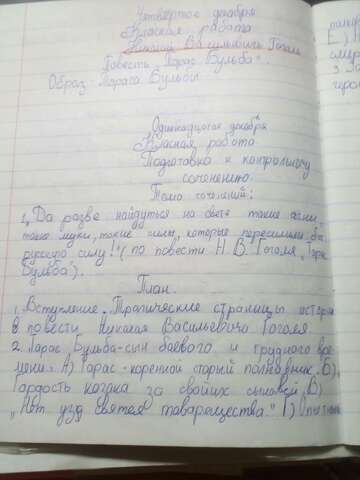 Четвёртое декабря
Класная работа
Николай Васильевич Гоголь
Повесть „Тарас Бульба".
Образ Тараса Бульбы
Одинадцатое декабря
Класная работа
Подготовка к контрольному
соченению
Тема сочинений:
„Да разве найдутся на свете такие огни,
такие муки, такие силы, которые пересилили бы
русскую силу!" (по повести Н. В. Гоголя „Тарас
Бульба").
План.
1. Вступление. Трагические страницы истории
в повести Николая Васильевича Гоголя.
2. Тарас Бульба-сын боевого и трудного вре
мени. А) Тарас-коренной старый полковник. Б)
Гордость козака за своих сыновей. В)
„Нет уз святея товарищества." Г)
Е)
3.